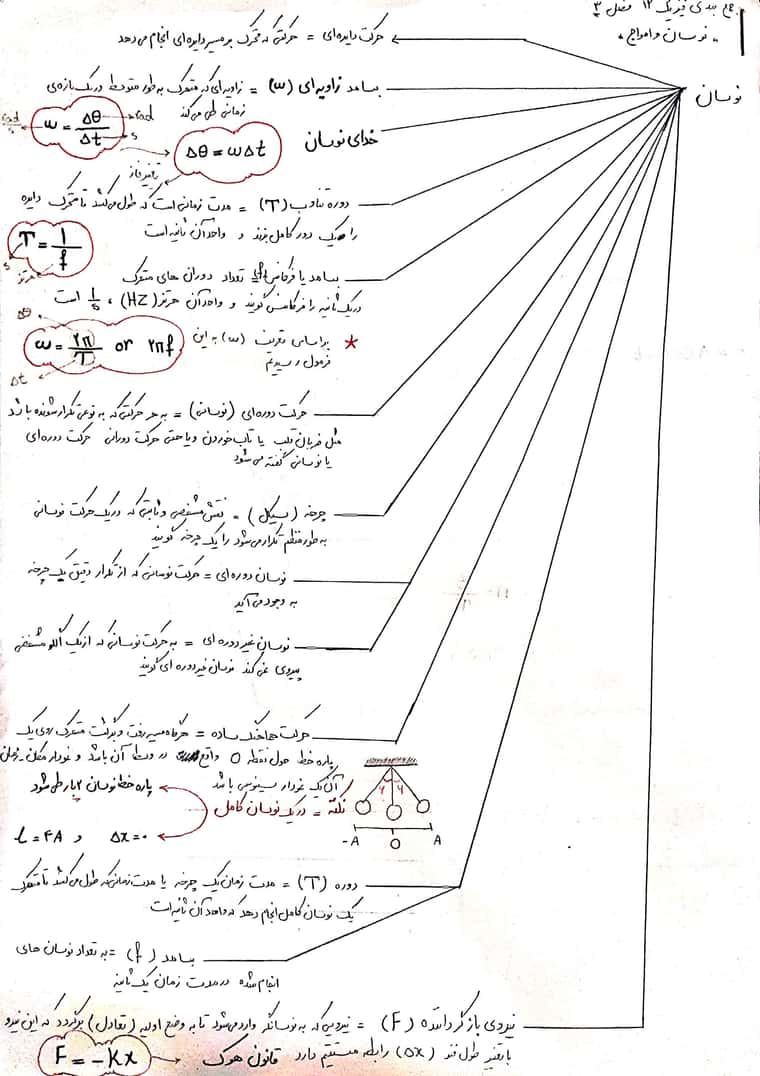 جمع بندی فیزیک ۱۲ فصل ۳
" نوسان و امواج "
نوسان
حرکت دایره ای = حرکتی که متحرک بر مسیر دایره ای انجام می دهد
بسامد زاویه ای (ω) = زاویه ای که متحرک به طور متوسط در یک بازه ی
زمانی طی می کند
ω = Δθ/Δt
rad
s
Δθ = ωΔt
خدای نوسان
تغییر فاز
دوره تناوب (T) = مدت زمانی است که طول می کشد تا متحرک دایره
را یک دور کامل بزند و واحد آن ثانیه است
T = 1/f
s
هرتز
بسامد یا فرکانس f تعداد دوران های متحرک
در یک ثانیه را فرکانس گویند و واحد آن هرتز (HZ) ، 1/s است
Δθ
ω = ۲π/T or ۲πf
Δt
* براساس تعریف (ω) به این
فرمول رسیدیم
حرکت دوره ای (نوسانی) = به هر حرکتی که به نوعی تکرار شونده باشد
مثل ضربان قلب یا تاب خوردن و یا حتی حرکت دورانی حرکت دوره ای
یا نوسانی گفته می شود
چرخه (سیکل) = نقش مشخص و ثابتی که در یک حرکت نوسانی
به طور منظم تکرار می شود را یک چرخه گویند
نوسان دوره ای = حرکت نوسانی که از تکرار دقیق یک چرخه
به وجود می آید
نوسان غیر دوره ای = به حرکت نوسانی که از یک الگو مشخص
پیروی نمی کند نوسان غیر دوره ای گویند
حرکت هماهنگ ساده = هرگاه مسیر رفت و برگشت متحرک روی یک
پاره خط حول نقطه O واقع در وسط آن باشد و نمودار مکان - زمان
آن یک نمودار سینوسی باشد
نکته = در یک نوسان کامل
پاره خط نوسان ۲ بار طی شود
l = ۴A و Δx = ۰
-A O A
دوره (T) = مدت زمان یک چرخه یا مدت زمانی که طول می کشد تا متحرک
یک نوسان کامل انجام دهد که واحد آن ثانیه است
بسامد (f) = به تعداد نوسان های
انجام شده در مدت زمان یک ثانیه
نیروی بازگرداننده (F) = نیرویی که به نوسانگر وارد می شود تا به وضع اولیه (تعادل) برگردد که این نیرو
با تغییر طول فنر (Δx) رابطه مستقیم دارد
قانون هوک
F = -Kx